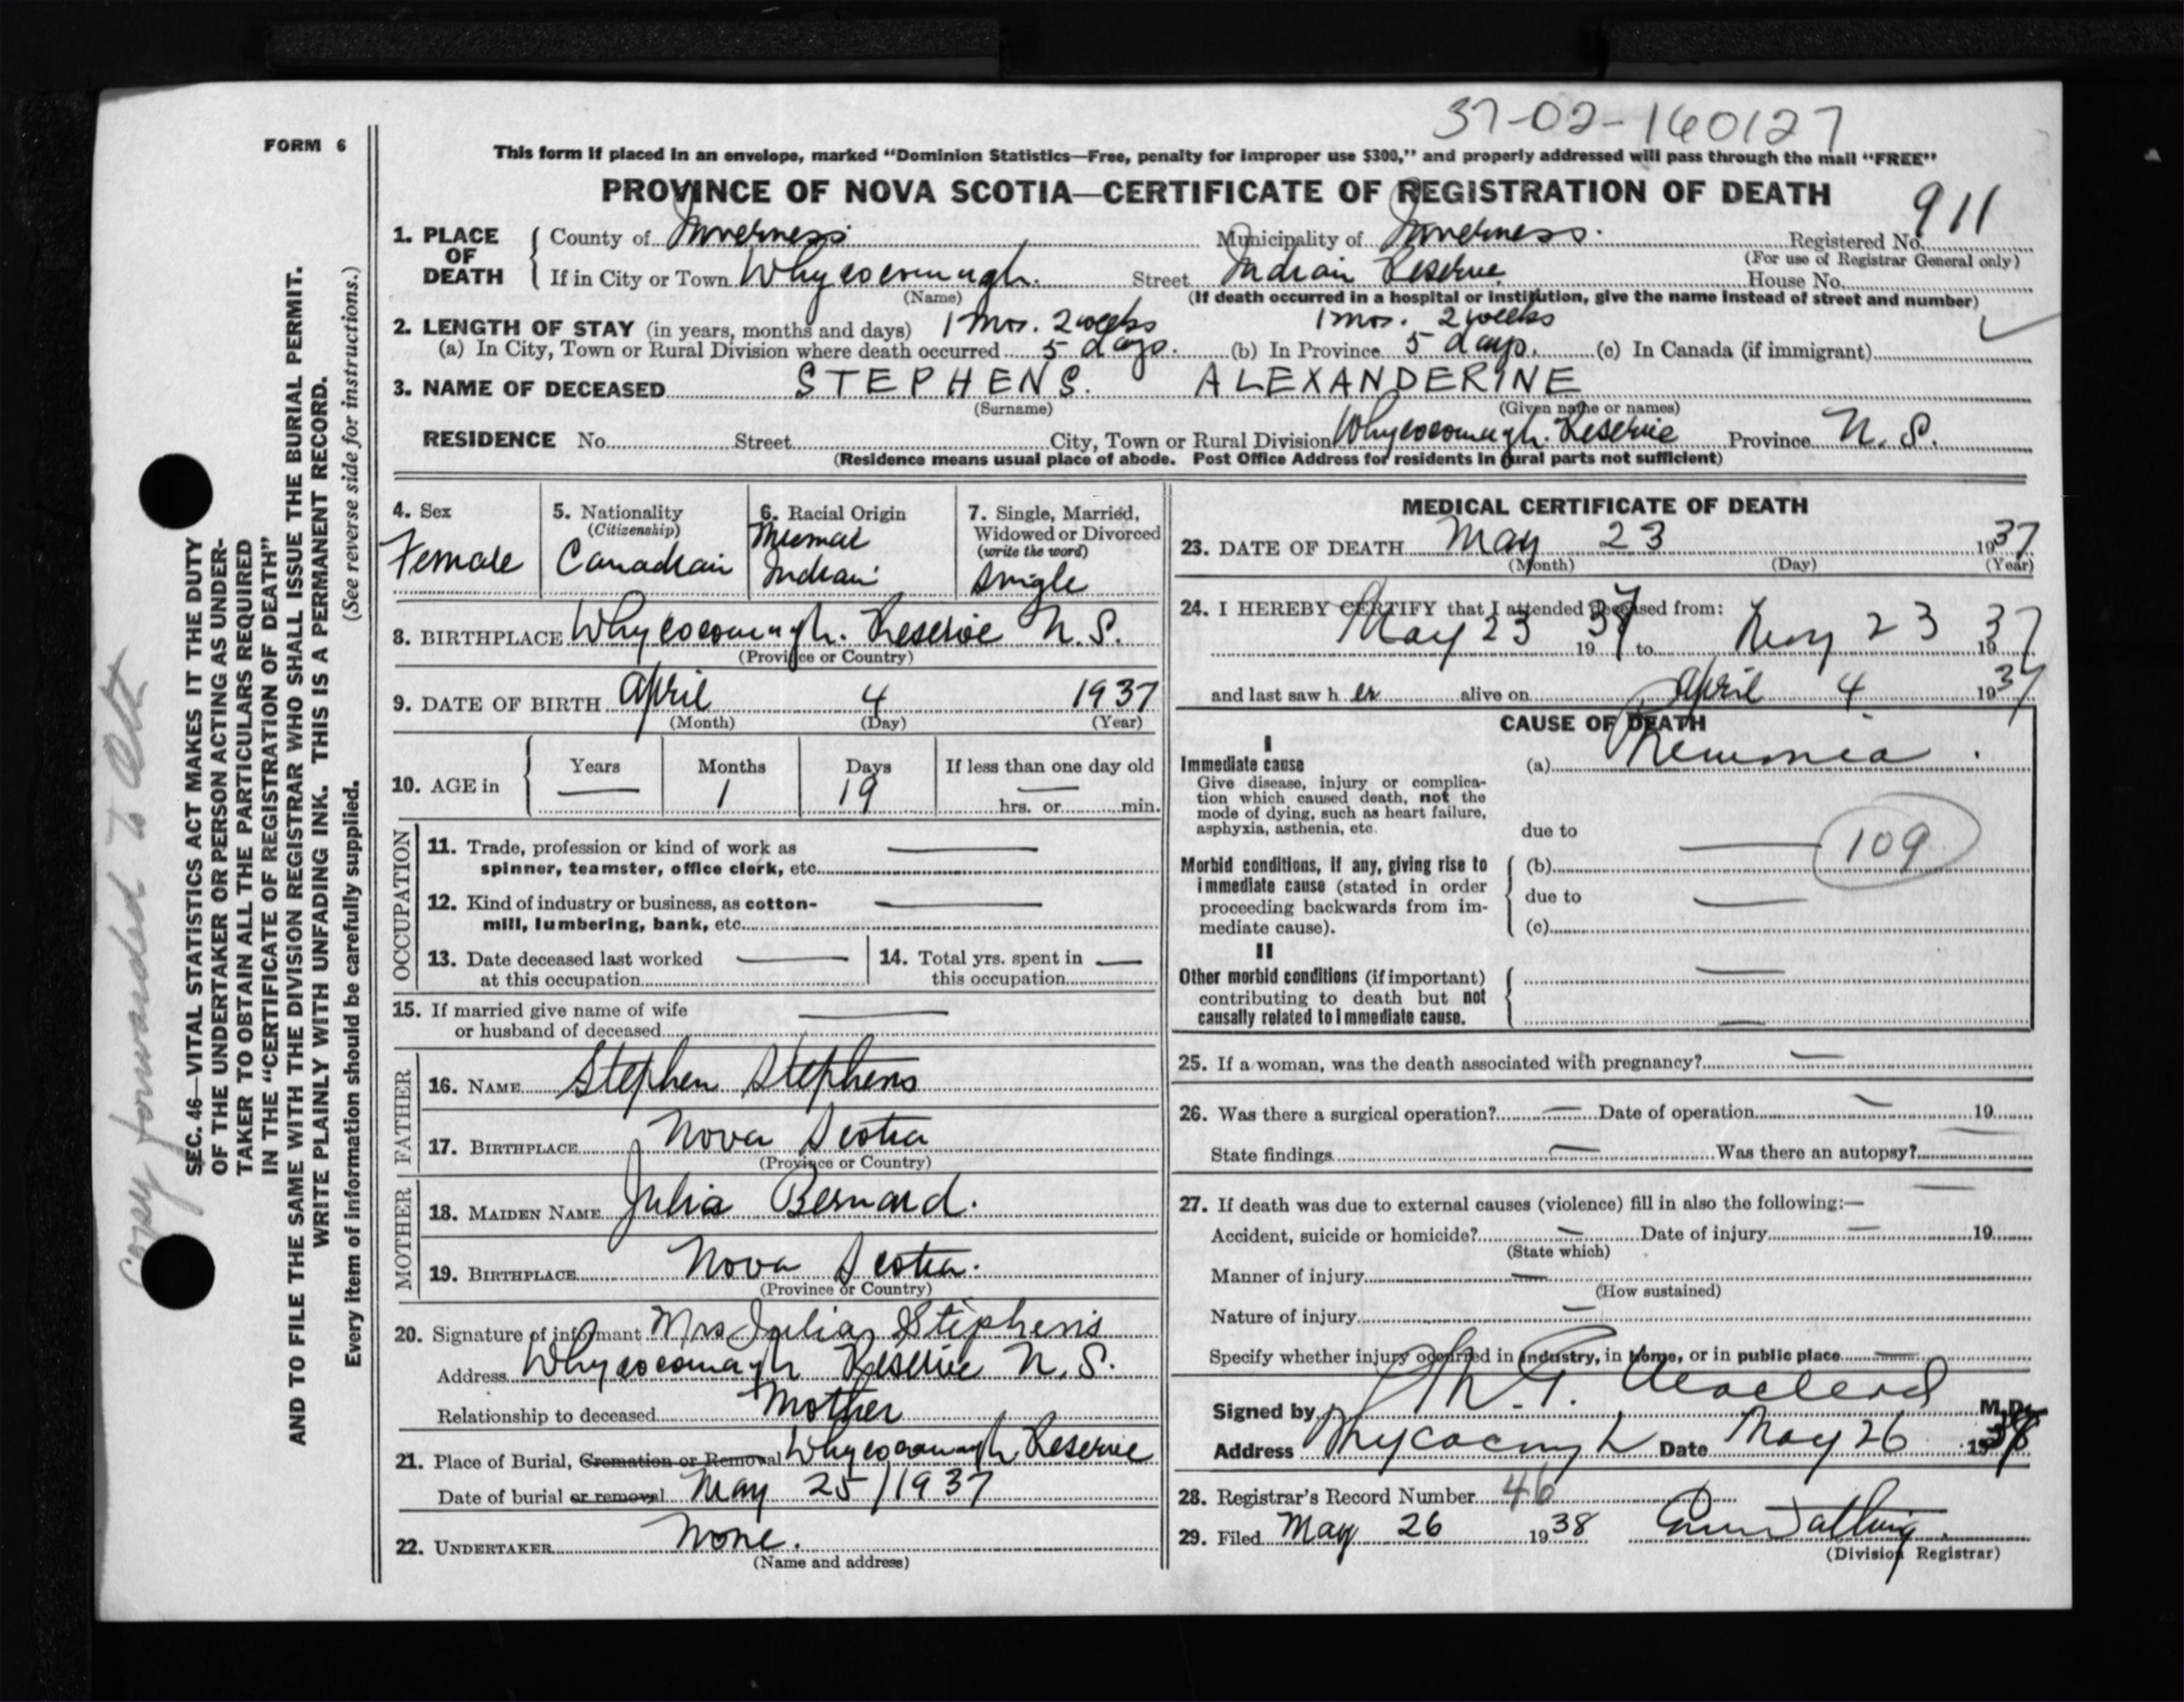 37-02-160127
FORM 6
This form if placed in an envelope, marked "Dominion Statistics—Free, penalty for improper use $300," and properly addressed will pass through the mail "FREE"
PROVINCE OF NOVA SCOTIA—CERTIFICATE OF REGISTRATION OF DEATH
911
1. PLACE OF DEATH { County of Inverness Municipality of Inverness. Registered No.
(For use of Registrar General only)
If in City or Town Whycocomagh. Street Indian Reserve House No.
(Name) (If death occurred in a hospital or institution, give the name instead of street and number)
2. LENGTH OF STAY (in years, months and days) 1 mos. 2 weeks 1 mos. 2 weeks
(a) In City, Town or Rural Division where death occurred 5 days. (b) In Province 5 days. (c) In Canada (if immigrant)
3. NAME OF DECEASED STEPHENS. ALEXANDERINE
(Surname) (Given name or names)
RESIDENCE No. Street City, Town or Rural Division Whycocomagh. Reserve Province N. S.
(Residence means usual place of abode. Post Office Address for residents in rural parts not sufficient)
4. Sex
Female
5. Nationality
(Citizenship)
Canadian
6. Racial Origin
Micmac
Indian
7. Single, Married,
Widowed or Divorced
(write the word)
Single
8. BIRTHPLACE Whycocomagh. Reserve N. S.
(Province or Country)
9. DATE OF BIRTH April 4 1937
(Month) (Day) (Year)
10. AGE in { Years Months Days If less than one day old
— 1 19 — hrs. or min.
OCCUPATION
11. Trade, profession or kind of work as —
spinner, teamster, office clerk, etc.
12. Kind of industry or business, as cotton- —
mill, lumbering, bank, etc.
13. Date deceased last worked —
at this occupation
14. Total yrs. spent in —
this occupation
15. If married give name of wife —
or husband of deceased
FATHER
16. NAME Stephen Stephens
17. BIRTHPLACE Nova Scotia
(Province or Country)
MOTHER
18. MAIDEN NAME Julia Bernard.
19. BIRTHPLACE Nova Scotia.
(Province or Country)
20. Signature of informant Mrs Julia Stephens
Address Whycocomagh Reserve N. S.
Relationship to deceased Mother
21. Place of Burial, Cremation or Removal Whycocomagh Reserve
Date of burial or removal May 25/1937
22. UNDERTAKER None.
(Name and address)
MEDICAL CERTIFICATE OF DEATH
23. DATE OF DEATH May 23 1937
(Month) (Day) (Year)
24. I HEREBY CERTIFY that I attended deceased from:
May 23 1937 to May 23 1937
and last saw h er alive on April 4 1937
CAUSE OF DEATH
I
Immediate cause
Give disease, injury or complica-
tion which caused death, not the
mode of dying, such as heart failure,
asphyxia, asthenia, etc.
(a) Pneumonia.
due to
Morbid conditions, if any, giving rise to
immediate cause (stated in order
proceeding backwards from im-
mediate cause).
(b) — 109
due to —
(c)
II
Other morbid conditions (if important)
contributing to death but not
causally related to immediate cause.
—
—
25. If a woman, was the death associated with pregnancy? —
26. Was there a surgical operation? — Date of operation — 19
State findings — Was there an autopsy? —
27. If death was due to external causes (violence) fill in also the following:— —
Accident, suicide or homicide? — Date of injury — 19
(State which)
Manner of injury —
(How sustained)
Nature of injury —
Specify whether injury occurred in industry, in home, or in public place —
Signed by MacLeod M.D.
Address Whycocomagh Date May 26 1938
28. Registrar's Record Number 46
29. Filed May 26 1938
(Division Registrar)
Copy forwarded to Ott
SEC. 46—VITAL STATISTICS ACT MAKES IT THE DUTY
OF THE UNDERTAKER OR PERSON ACTING AS UNDER-
TAKER TO OBTAIN ALL THE PARTICULARS REQUIRED
IN THE "CERTIFICATE OF REGISTRATION OF DEATH"
AND TO FILE THE SAME WITH THE DIVISION REGISTRAR WHO SHALL ISSUE THE BURIAL PERMIT.
WRITE PLAINLY WITH UNFADING INK. THIS IS A PERMANENT RECORD.
Every item of information should be carefully supplied. (See reverse side for instructions.)